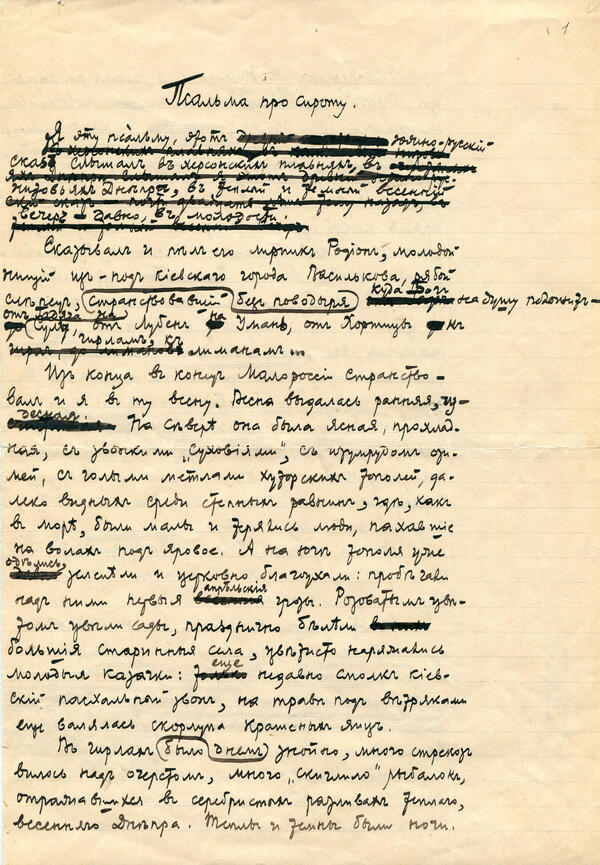 1
Псальма про сироту.
Я эту псальму, этотъ южно-русскій
сказъ слышалъ въ херсонскихъ плавняхъ, въ
низовьяхъ Днѣпра, въ теплый и темный весенній
вечеръ – давно, въ молодости.
Сказывалъ и пѣлъ его лирникъ Родіонъ, молодой
нищій изъ-подъ кіевскаго города Василькова, рябой
куда Богъ
слѣпецъ, странствовавшій безъ поводыря на душу положитъ –
отъ Гадяча на
Сулу, отъ Лубенъ на Умань, отъ Хортицы къ
гирламъ, къ
лиманамъ...
Изъ конца въ конецъ Малороссіи странство-
валъ и я въ ту весну. Весна выдалась ранняя, чу-
десная.
На сѣверѣ она была ясная, прохлад-
ная, съ звонкими „суховіями“, съ изумрудомъ ози-
мей, съ голыми метлами хуторскихъ тополей, да-
леко видныхъ среди степныхъ равнинъ, гдѣ, какъ
въ морѣ, были малы и терялись люди, пахавшіе
на волахъ подъ яровое. А на югѣ тополя уже
одѣлись,
зеленѣли и церковно благоухали: пробѣгали
апрѣльскія
надъ ними первыя грозы. Розоватымъ цвѣ-
томъ цвѣли сады, празднично бѣлѣли
большія старинныя села, цвѣтисто наряжались
еще
молодыя казачки: недавно смолкъ кіев-
скій пасхальный звонъ, на травѣ подъ вѣтряками
еще валялась скорлупа крашеныхъ яицъ.
Въ гирлахъ было днемъ знойно, много стрекозъ
вилось надъ очеретомъ, много „скиглило“ рыбалокъ,
отражавшихся въ серебристыхъ разливахъ теплаго,
весенняго Днѣпра. Теплы и темны были ночи.